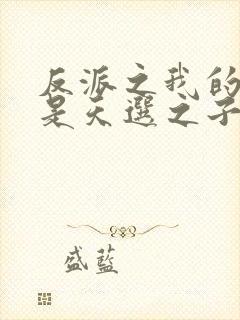 反派之我的
是天選之子
盛藍